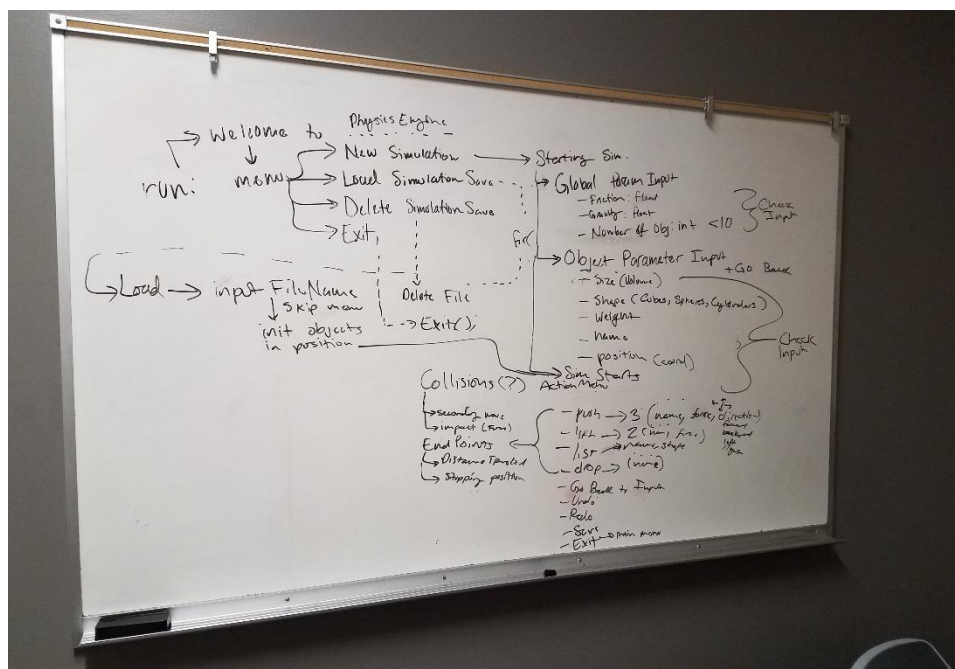 Physics Engine
Welcome to
run:
menu
New Simulation
Load Simulation Save
Delete Simulation Save
Exit
Starting Sim.
Global Param Input
- Friction: float
- Gravity: float
- Number of Obj: int <10
Check
Input
Object Parameter Input
+ Go Back
- Size (Volume)
- Shape (Cubes, Spheres, Cylenders)
- Weight
- name
- position (coord)
Check
Input
Load
input FileName
Skip menu
init objects
in position
Delete File
Exit();
Sim Starts
Action Menu
Collisions (?)
impact (Force)
End Points
Distance Traveled
Stopping position
- push 3 (name, force, direction)
forward
backward
left
- lift 2
- list name, shape
- drop (name)
- Go Back to Input
- Undo
- Redo
- Save
- Exit main menu